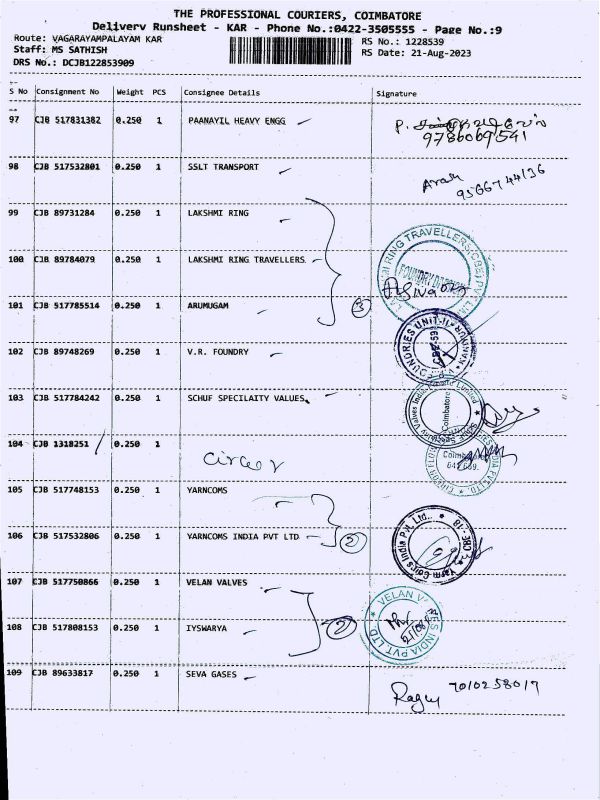 THE PROFESSIONAL COURIERS, COIMBATORE
Delivery Runsheet - KAR - Phone No.:0422-3505555 - Page No.:9
Route: VAGARAYAMPALAYAM KAR
RS No.: 1228539
Staff: MS SATHISH
RS Date: 21-Aug-2023
DRS No.: DCJB122853909
S No Consignment No Weight PCS Consignee Details Signature
97 CJB 517831382 0.250 1 PAANAYIL HEAVY ENGG
9786069541
98 CJB 517532801 0.250 1 SSLT TRANSPORT
9566744136
99 CJB 89731284 0.250 1 LAKSHMI RING
100 CJB 89784079 0.250 1 LAKSHMI RING TRAVELLERS
RING TRAVELLERS (CBE) PVT
101 CJB 517785514 0.250 1 ARUMUGAM
3
102 CJB 89748269 0.250 1 V.R. FOUNDRY
103 CJB 517784242 0.250 1 SCHUF SPECILAITY VALUES
Coimbatore
104 CJB 1318251 0.250 1
Circor
105 CJB 517748153 0.250 1 YARNCOMS
106 CJB 517532806 0.250 1 YARNCOMS INDIA PVT LTD
2
107 CJB 517750866 0.250 1 VELAN VALVES
VELAN VALVES INDIA PVT LTD
108 CJB 517808153 0.250 1 IYSWARYA
2
109 CJB 89633817 0.250 1 SEVA GASES
Ragu 7010258017